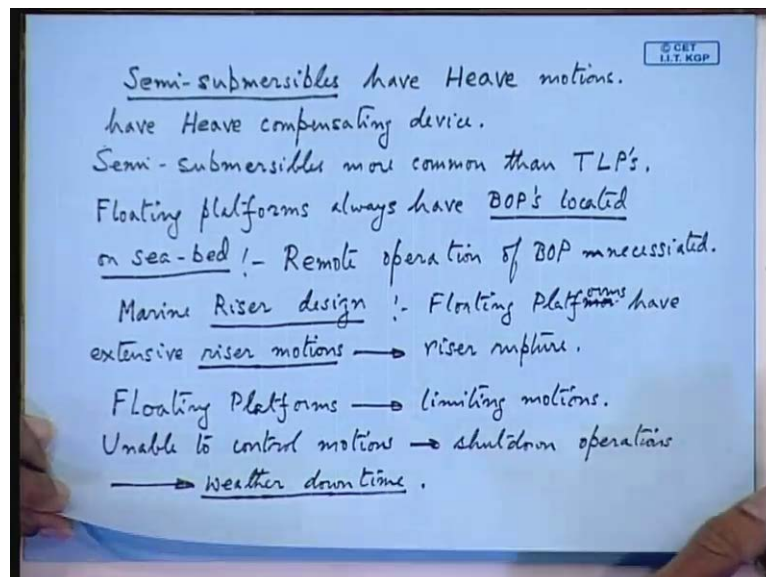 © CET
I.I.T. KGP
Semi-submersibles have Heave motions.
have Heave compensating device.
Semi-submersibles more common than TLP's.
Floating platforms always have BOP's located
on sea-bed !- Remote operation of BOP mnecessiated.
Marine Riser design !- Floating Platforms have
extensive riser motions → riser rupture.
Floating Platforms → limiting motions.
Unable to control motions → shutdown operations
→ weather down time.